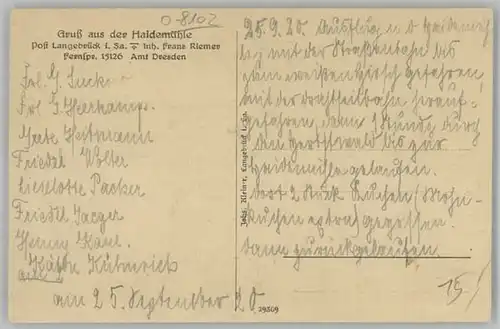 0-8102
Gruß aus der Haidemühle
Post Langebrück i. Sa. Inh. Franz Riemer
Fernspr. 15126 Amt Dresden
Frl. G. Sucker
Frl. G. Heerkamp.
Grete Heitmann
Friedel Wolter
Lieselotte Packer
Friedel Jaeger
Henny Kaul.
Käthe Külmrich
am 25. September 20
25.9.20. Ausflug n. d. Heidemühle
mit der Straßenbahn bis
zum weißen Hirsch gefahren,
mit der Drahtseilbahn herauf-
gefahren, dann 1 Stunde durch
den Forstwald bis zur
Heidemühle gelaufen.
dort 2 Stück Kuchen (Mohn-
kuchen extra) gegessen.
dann zurückgelaufen.
Joh. Kleiner, Langebrück i. Sa.
29509
15/